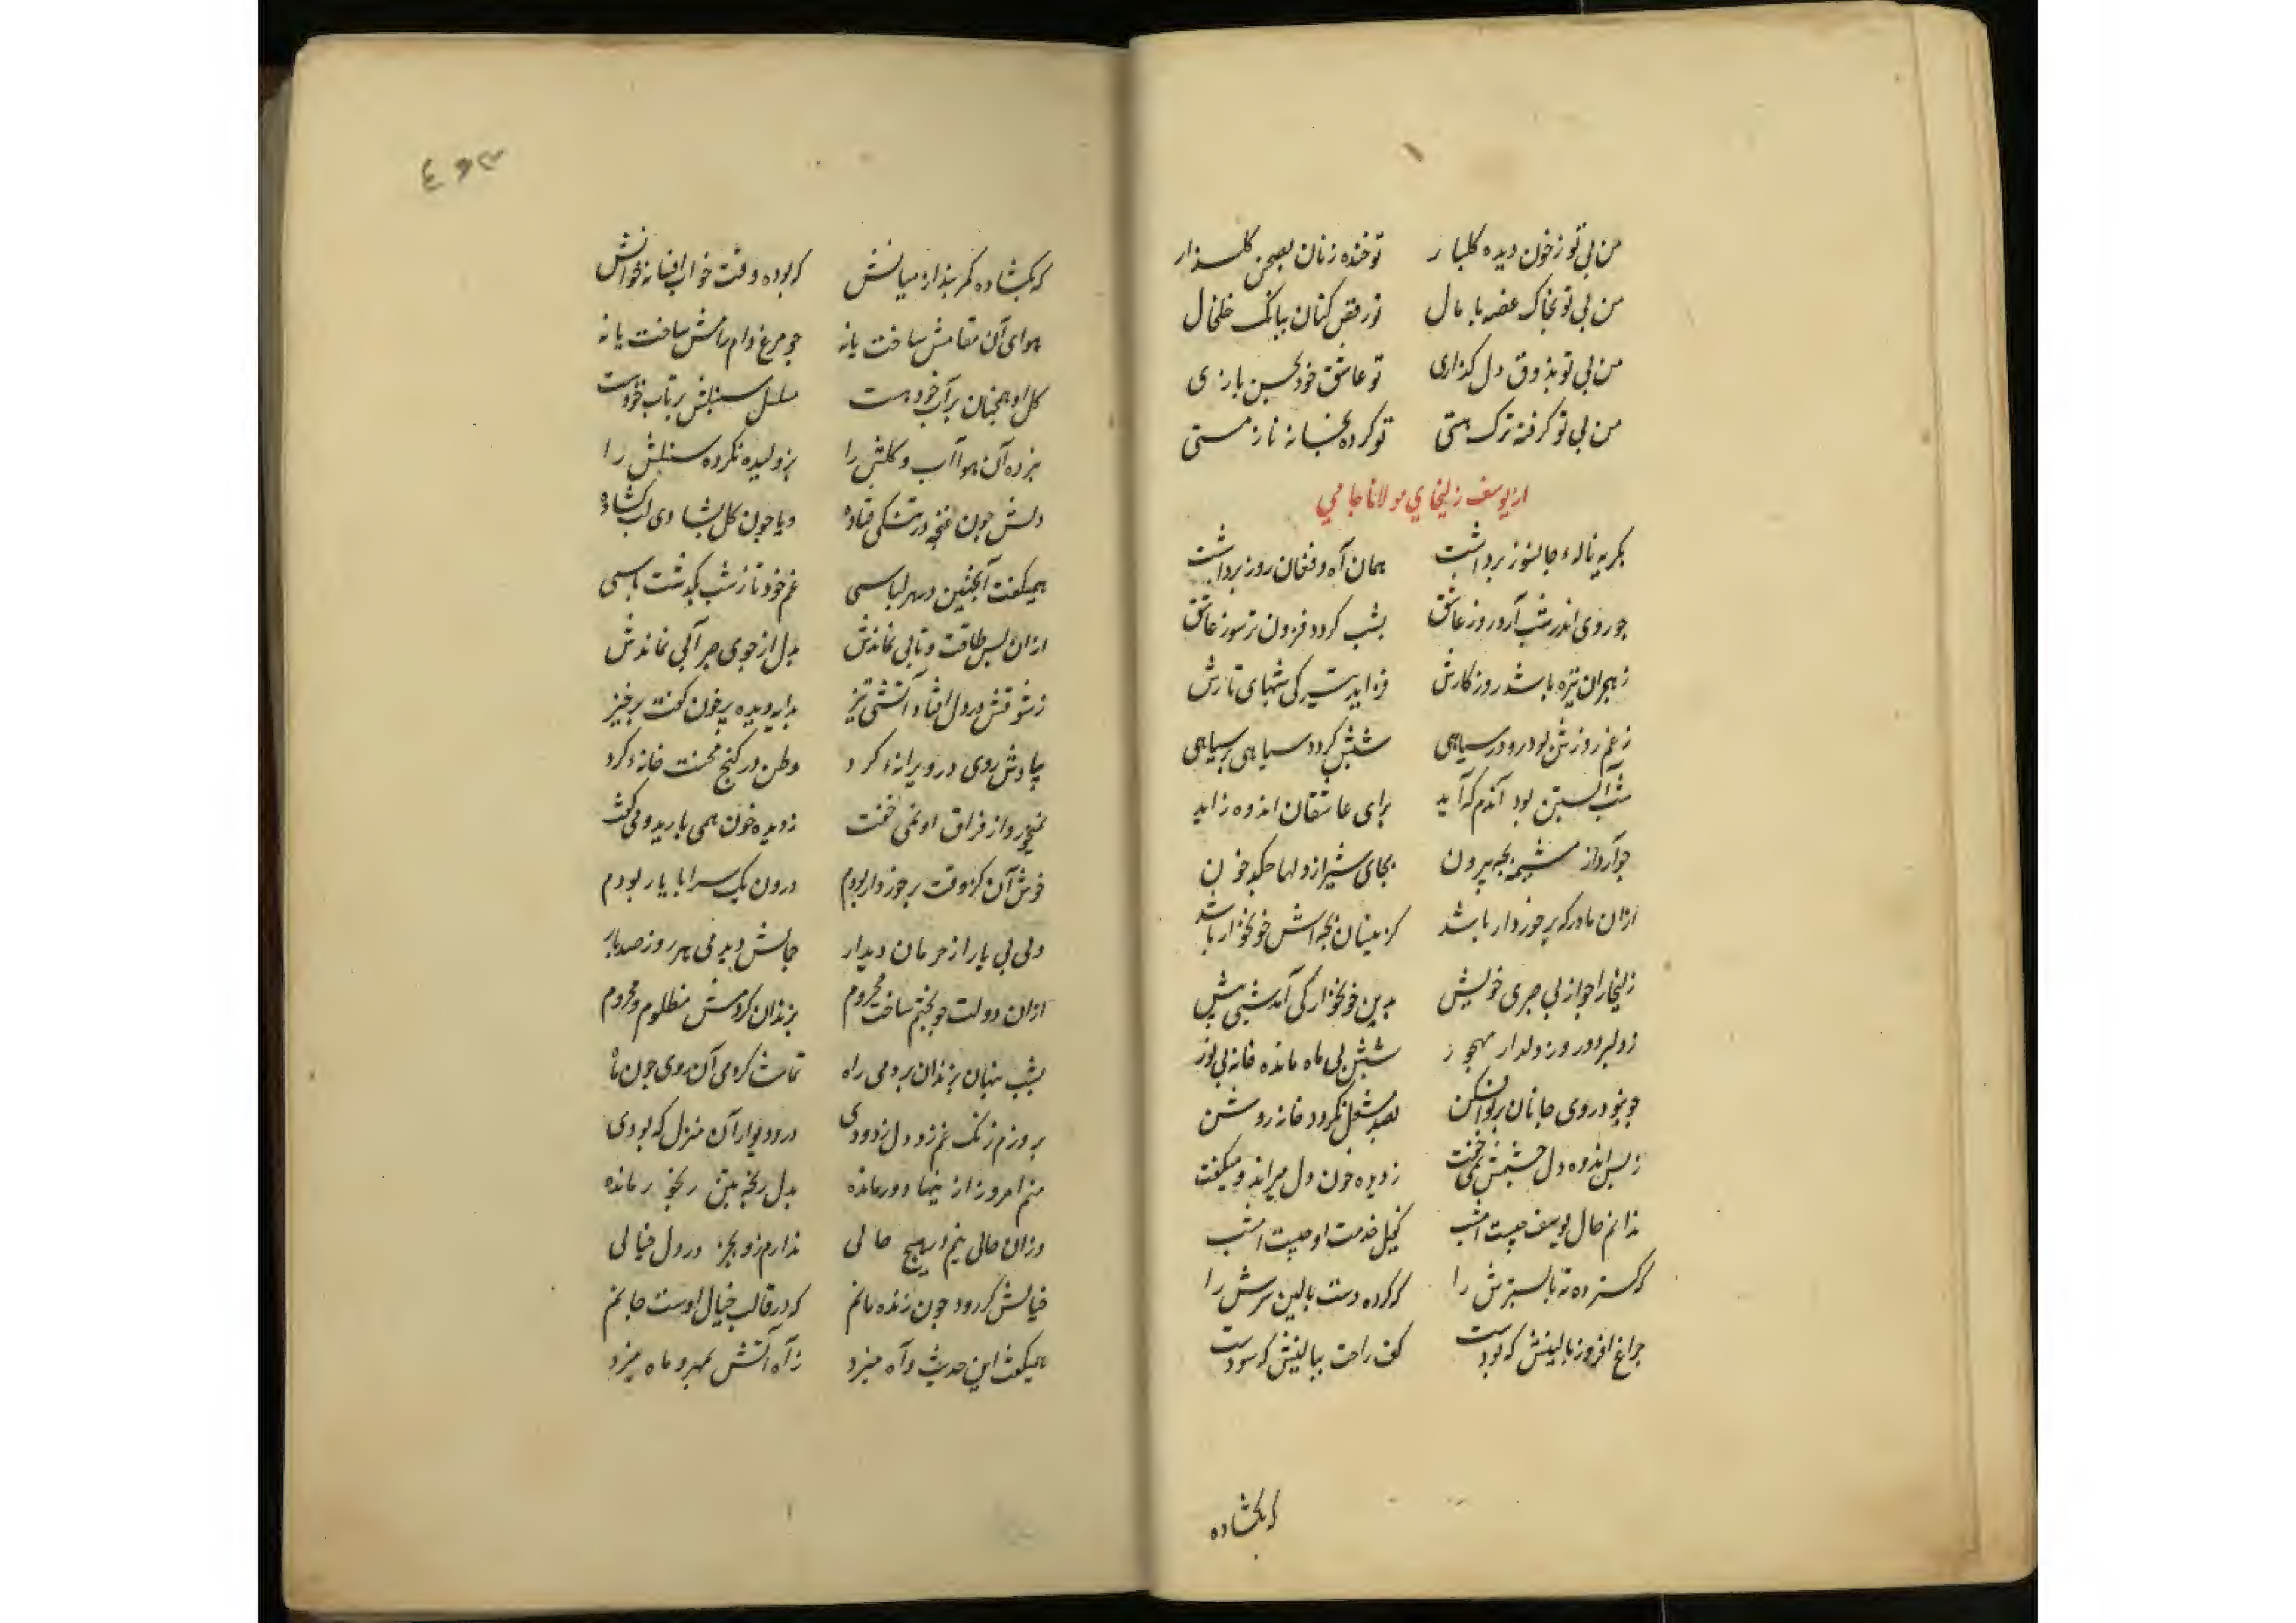 من بی تو ز خون دیده کلبار تو خنده زنان بصحن کلـزار
من بی تو بخاک غصه پامال تو رقص کنان ببانک خلخال
من بی تو بذوق دل کدازی تو عاشق خود بحسن بازی
من بی تو کرفته ترک هستی تو کرده بخانه ناز مستی
از یوسف زلیخای مولانا جامی
بکریه ناله جانسوز برداشت همان آه و فغان روز برداشت
جو روی اندر شب آرد روز عاشق بشب کردد فزون تر سوز عاشق
ز هجران تیره باشد روزکارش فزاید تیرکی شبهای تارش
ز غم روزش بود رو در سیاهی شبش کردد سیاهی بر سیاهی
شب آبستن بود آندم که آید برای عاشقان اندوه زاید
جو آرد از مشیمه بجه بیرون بجای شیر از دلها مکد خون
ازان مادر که برخوردار باشد کزینسان بجه اش خونخوار باشد
زلیخا را جو از بی صبری خویش بدین خونخوارکی آمد شبی پیش
ز دلبر دور و ز دلدار مهجور شبش بی ماه مانده خانه بی نور
جو ننمود روی جانان پرتو افکن بصد مشعل نکردد خانه روشن
ز بس اندوه دل جشمش نمی خفت ز دیده خون دل میراند و میکفت
ندانم حال یوسف جیست امشب کفیل خدمت او کیست امشب
که کسترده ته پا بسترش را که کرده دست بالین سرش را
جراغ افروز بالینش که بودست کف راحت ببالینش که سودست
که بکشاده
که بکشاده کمر بند از میانش که بوده وقت خواب افسانه خوانش
هوای آن مقامش ساخت یا نه جو مرغ دام رامش ساخت یا نه
کل او همجنان بر آب خودست مسلسل سنبلش بر تاب خودست
نبرده آن هوا آب و کلش را پژولیده نکرده سنبلش را
دلش جون غنجه در تنکی فتاده و یا جون کل بشادی لب کشاده
همیکفت اینجنین در هر لباسی غم خود تا ز شب بکذشت پاسی
ازان پس طاقت و تابی نماندش بدل از جوی صبر آبی نماندش
ز شوقش در دل افتاد آتشی تیز بدایه دیده پر خون کفت برخیز
بیادش روی در ویرانه کرد وطن در کنج محنت خانه کرد
نمیخورد از فراق او نمی خفت ز دیده خون همی بارید و می کفت
خوش آن کز وقت برخوردار بودم درون یک سرا با یار بودم
ولی بی یار از حرمان دیدار جمالش دیدمی هر روز صد بار
ازان دولت جو بختم ساخت محروم بزندان کردمش مظلوم و محروم
بشب پنهان بزندان بردمی راه تماشا کردمی آن روی جون ماه
بروزم زنک غم زو دل زدودی در و دیوار آن منزل که بودی
منم امروز از اینها دور مانده بدل رنجه بتن رنجور مانده
وزان حالی نیم در هیج حالی ندارم زو بجز در دل خیالی
خیالش کر رود جون زنده مانم که در قالب خیال اوست جانم
همیکفت این حدیث و آه میزد ز آه آتش بمهر و ماه میزد